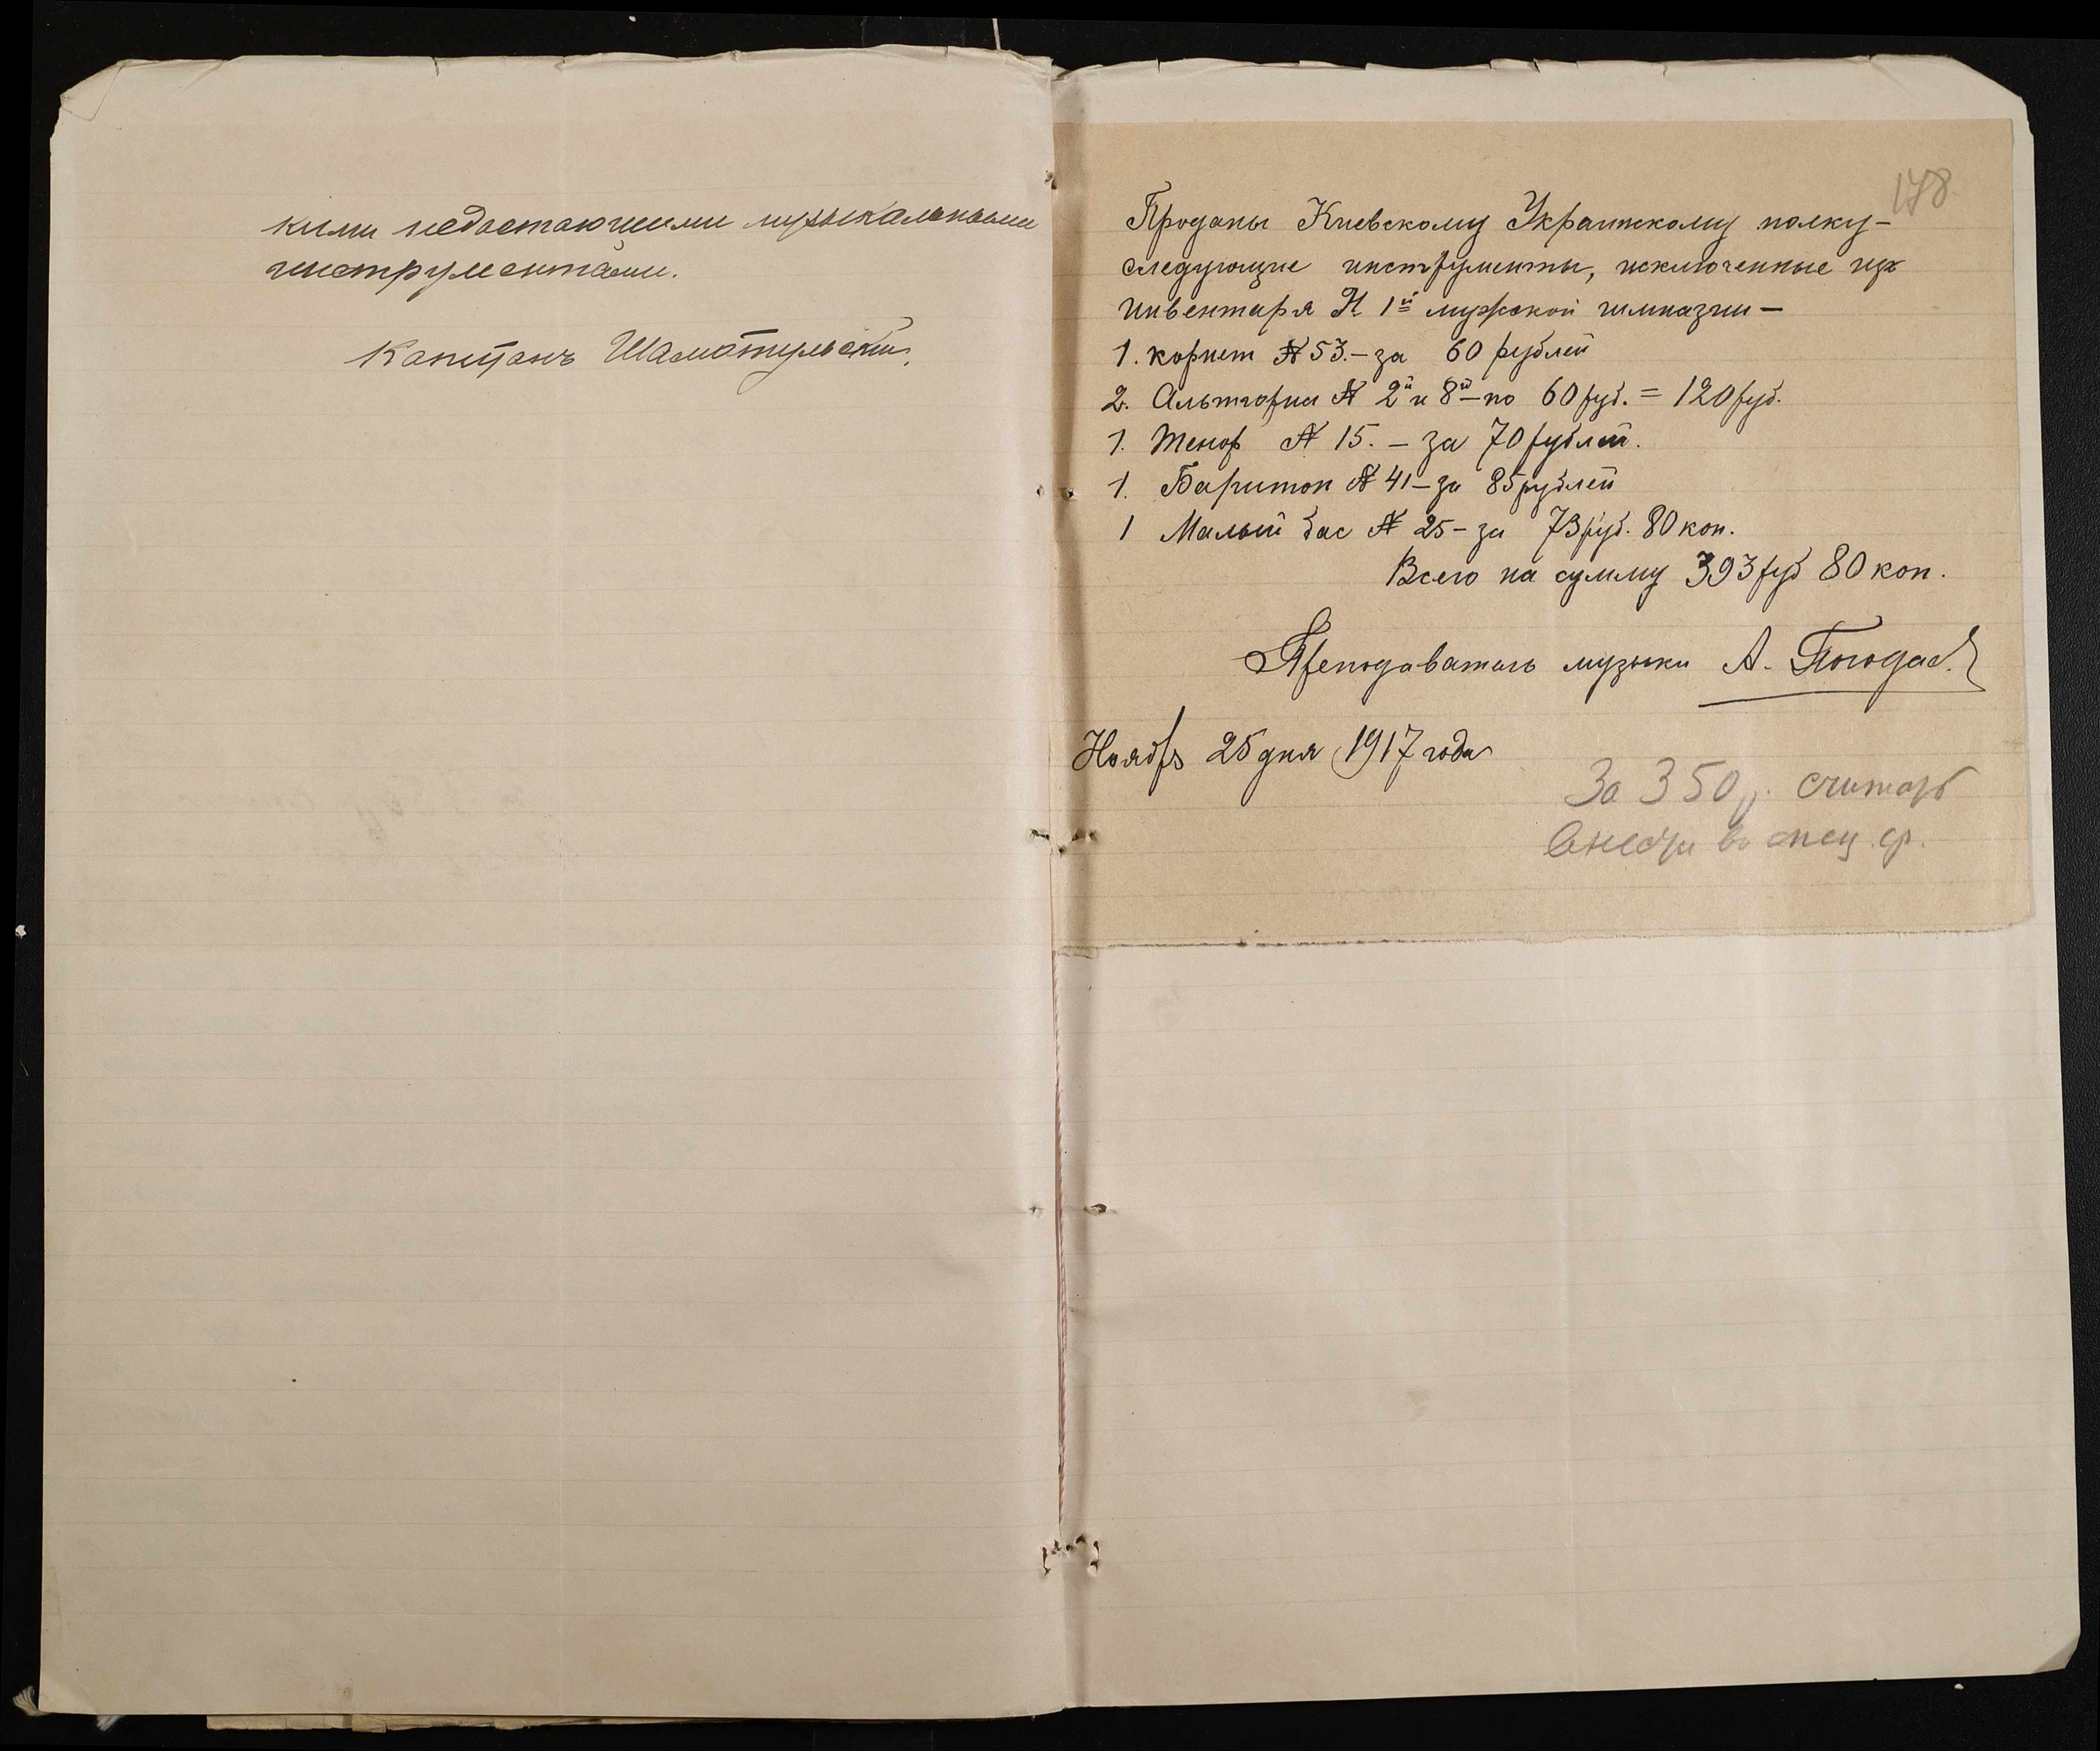 кими недостающими музыкальными
инструментами.
Капитанъ Шамотульскій.
178
Проданы Киевскому Украинскому полку –
следующие инструменты, исключенные из
инвентаря К. 1й мужской гимназии –
1. корнет № 53. – за 60 рублей
2. Альтгорна № 2й и 8й – по 60 руб. = 120 руб.
1. Тенор № 15. – за 70 рублей.
1. Баритон № 41 – за 85 рублей
1 Малый бас № 25 – за 73 руб. 80 коп.
Всего на сумму 393 руб 80 коп.
Преподаватель музыки А. Погода
Ноябрь 25 дня 1917 года
За 350 р. считать
внести въ спец. ср.